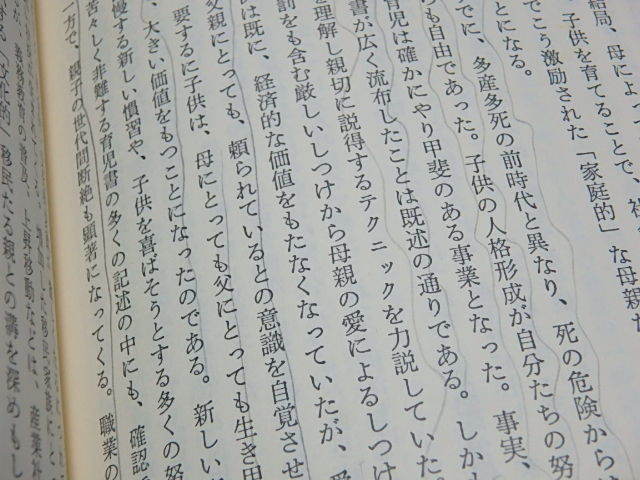 結局、母によっ
、子供を育てることで、社
でこう激励された「家庭的」な母親た
とになる。
でに、多産多死の前時代と異なり、死の危険から
らも自由であった。子供の人格形成が自分たちの努
育児は確かにやり甲斐のある事業となった。事実、
書が広く流布したことは既述の通りである。しかも
を理解し親切に説得するテクニックを力説していた。
罰をも含む厳しいしつけから母親の愛によるしつけ
は既に、経済的な価値をもたなくなっていたが、愛
父親にとっても、頼られているとの意識を自覚させ
要するに子供は、母にとっても父にとっても生き甲
、大きい価値をもつことになったのである。新しい
慢する新しい慣習や、子供を喜ばそうとする多くの努
苦々しく非難する育児書の多くの記述の中にも、確認
一方で、親子の世代間断絶も顕著になってくる。職業の
上昇移動などに、産業社
「文化的」移民たる親との溝を深めもし